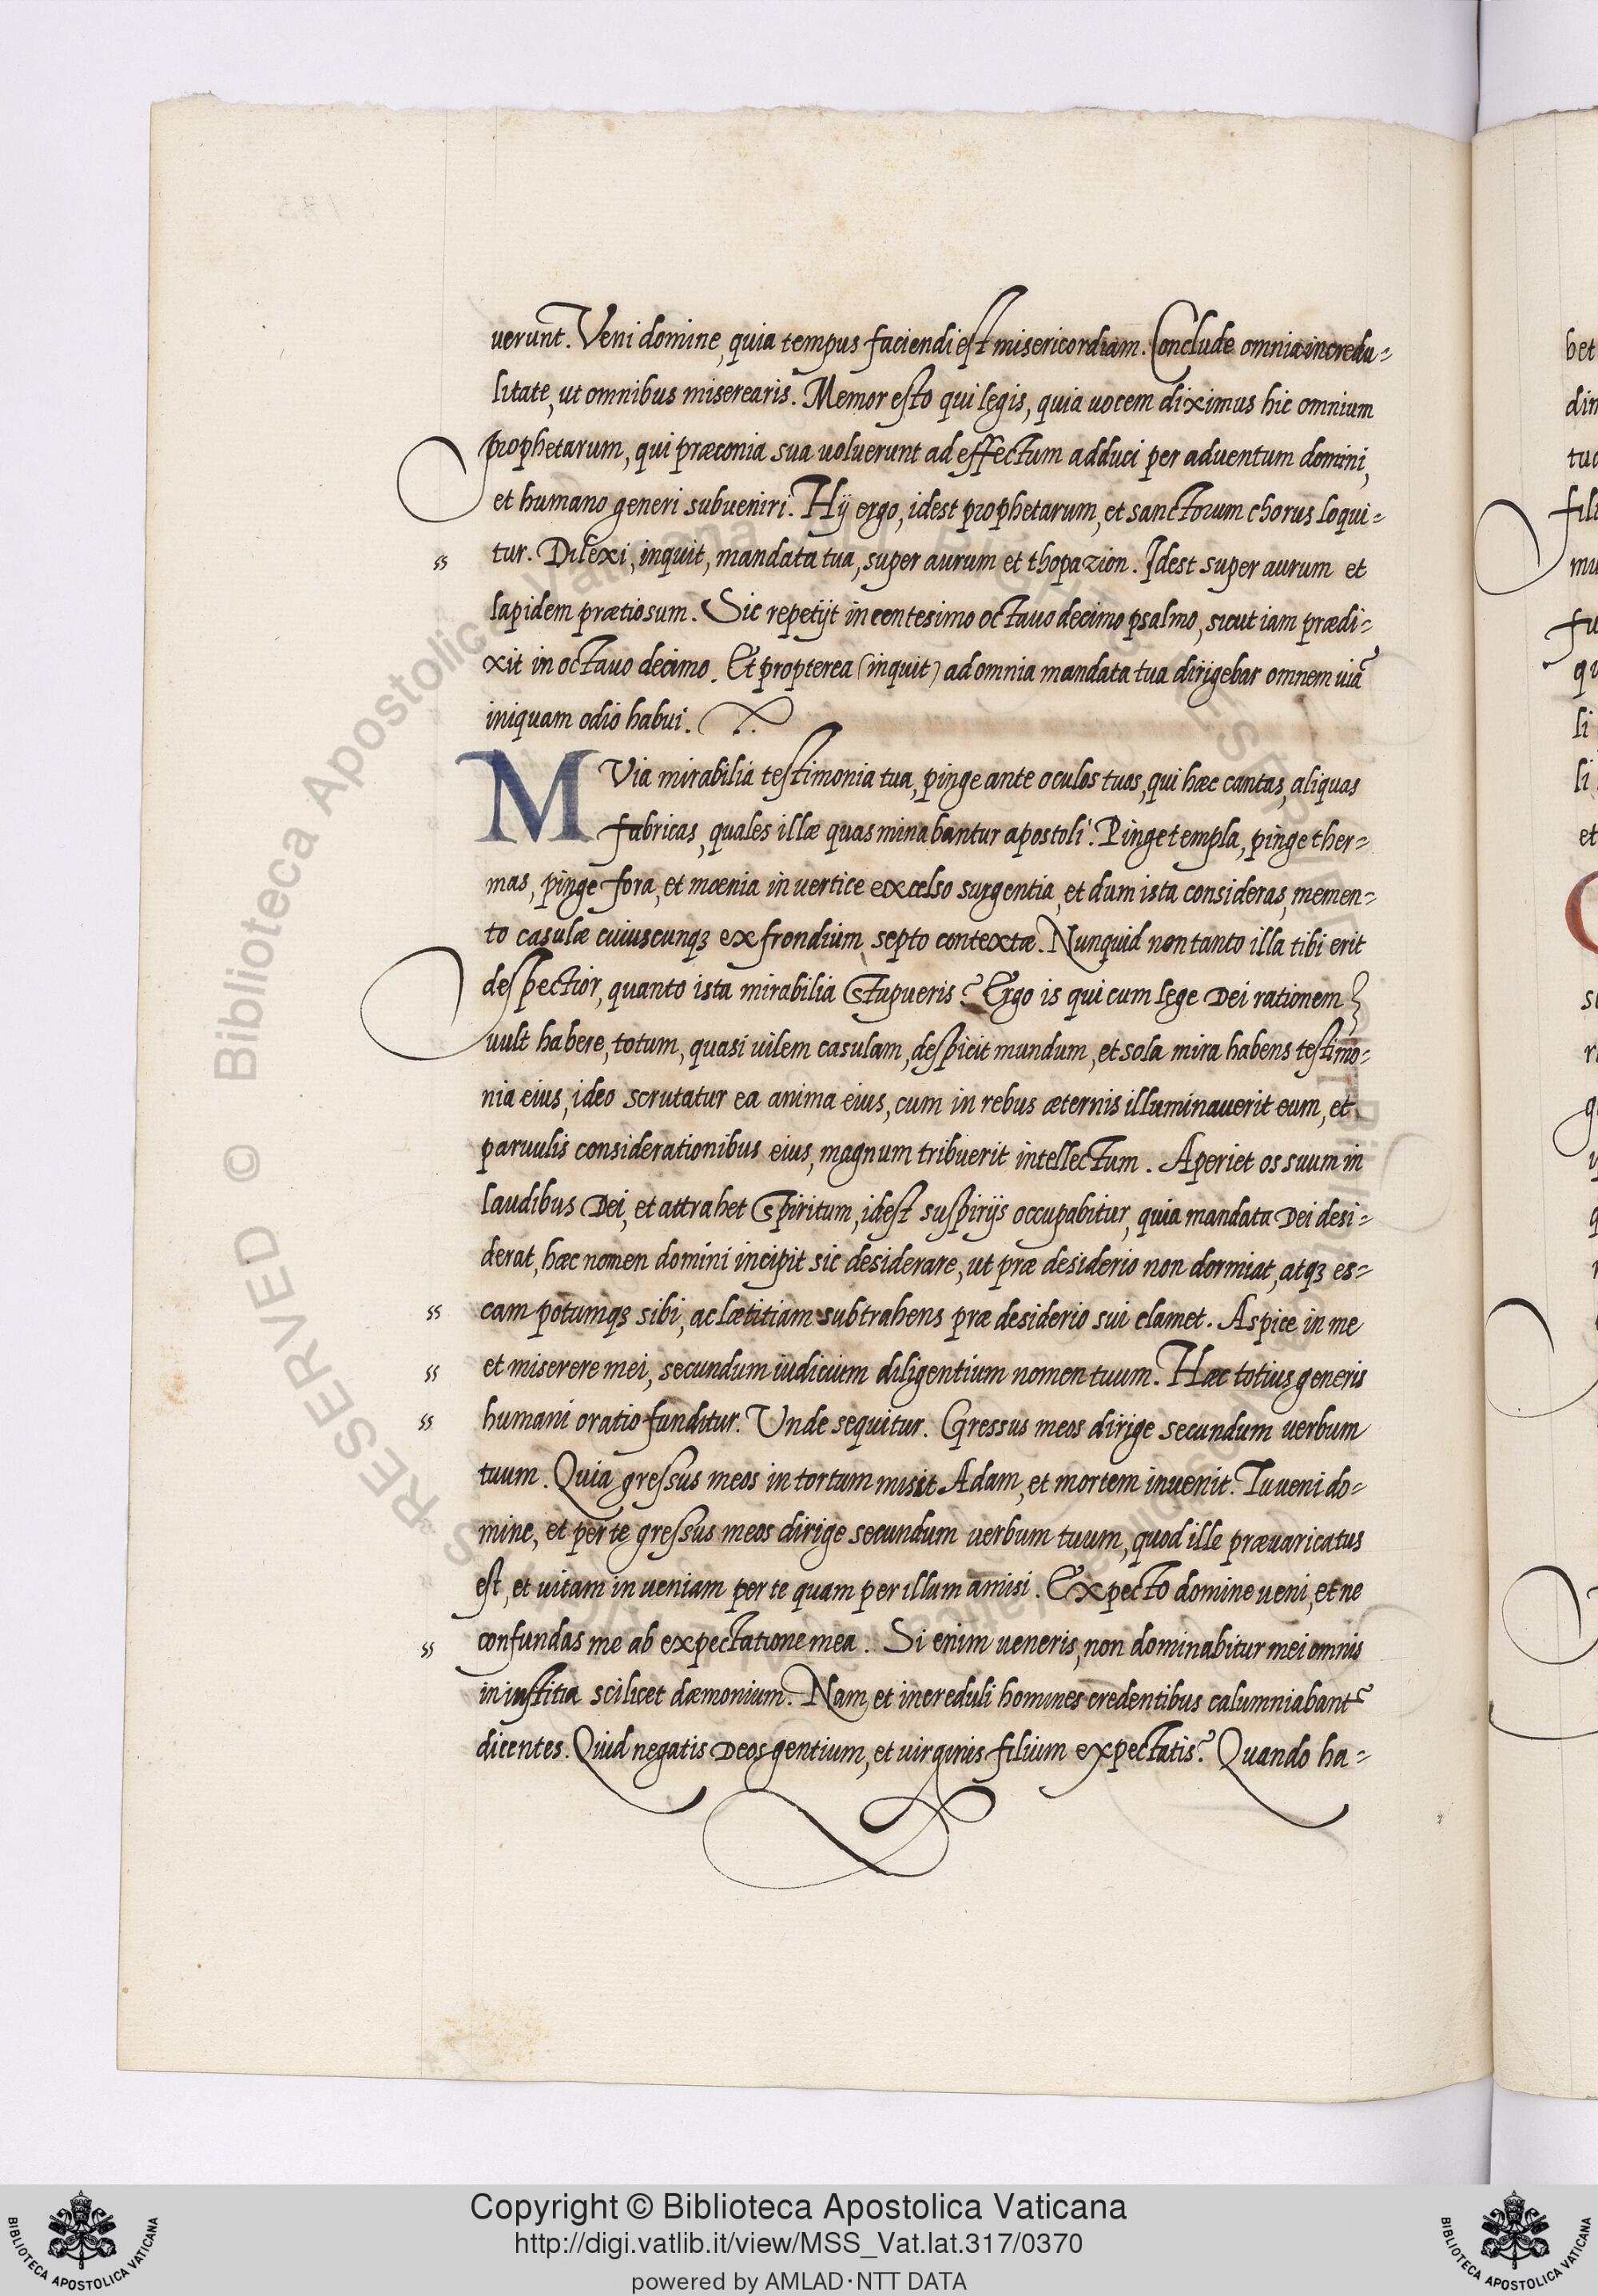 verunt. Veni domine, quia tempus faciendi est misericordiam. Conclude omnia incredu-
litate, ut omnibus miserearis. Memor esto qui legis, quia uocem diximus hic omnium
prophetarum, qui præconia sua uoluerunt ad effectum adduci per aduentum domini,
et humano generi subueniri. Hÿ ergo, idest prophetarum, et sanctorum chorus loqui-
tur. Dilexi, inquit, mandata tua, super aurum et thopazion. Idest super aurum et
lapidem prætiosum. Sic repetÿt in centesimo octauo decimo psalmo, sicut iam prædi-
xit in octauo decimo. Et propterea (inquit) ad omnia mandata tua dirigebar omnem uiã
iniquam odio habui.
MVia mirabilia testimonia tua, pinge ante oculos tuos, qui hæc cantas, aliquas
fabricas, quales illæ quas minabantur apostoli. Pinge templa, pinge ther-
mas, pinge fora, et mœnia in uertice excelso surgentia, et dum ista consideras, memen-
to casulæ cuiuscunqꝫ ex frondium septo contextæ. Nunquid non tanto illa tibi erit
despectior, quanto ista mirabilia stupueris? Ergo is qui cum lege Dei rationem
uult habere, totum, quasi uilem casulam, despicit mundum, et sola mira habens testimo-
nia eius, ideo scrutatur ea anima eius, cum in rebus æternis illuminauerit eum, et
paruulis considerationibus eius, magnum tribuerit intellectum. Aperiet os suum in
laudibus Dei, et attrahet Spiritum, idest suspirÿs occupabitur, quia mandata Dei desi-
derat, hæc nomen domini incipit sic desiderare, ut præ desiderio non dormiat, atqꝫ es-
cam potumqꝫ sibi, ac lætitiam subtrahens præ desiderio sui clamet. Aspice in me
et miserere mei, secundum iudicium diligentium nomen tuum. Hæc totius generis
humani oratio funditur. Unde sequitur. Gressus meos dirige secundum uerbum
tuum. Quia gressus meos in tortum misit Adam, et mortem inuenit. Tu ueni do-
mine, et per te gressus meos dirige secundum uerbum tuum, quod ille præuaricatus
est, et uitam inueniam per te quam per illum amisi. Expecto domine ueni, et ne
confundas me ab expectatione mea. Si enim ueneris, non dominabitur mei omnis
iniustitia scilicet dæmonium. Nam et increduli homines credentibus calumniabant᷑
dicentes. Quid negatis Deos gentium, et uirginis filium expectatis? Quando ha-
bet
tua
et
Copyright © Biblioteca Apostolica Vaticana
http://digi.vatlib.it/view/MSS_Vat.lat.317/0370
powered by AMLAD·NTT DATA
BIBLIOTECA APOSTOLICA VATICANA
BIBLIOTECA APOSTOLICA VATICANA